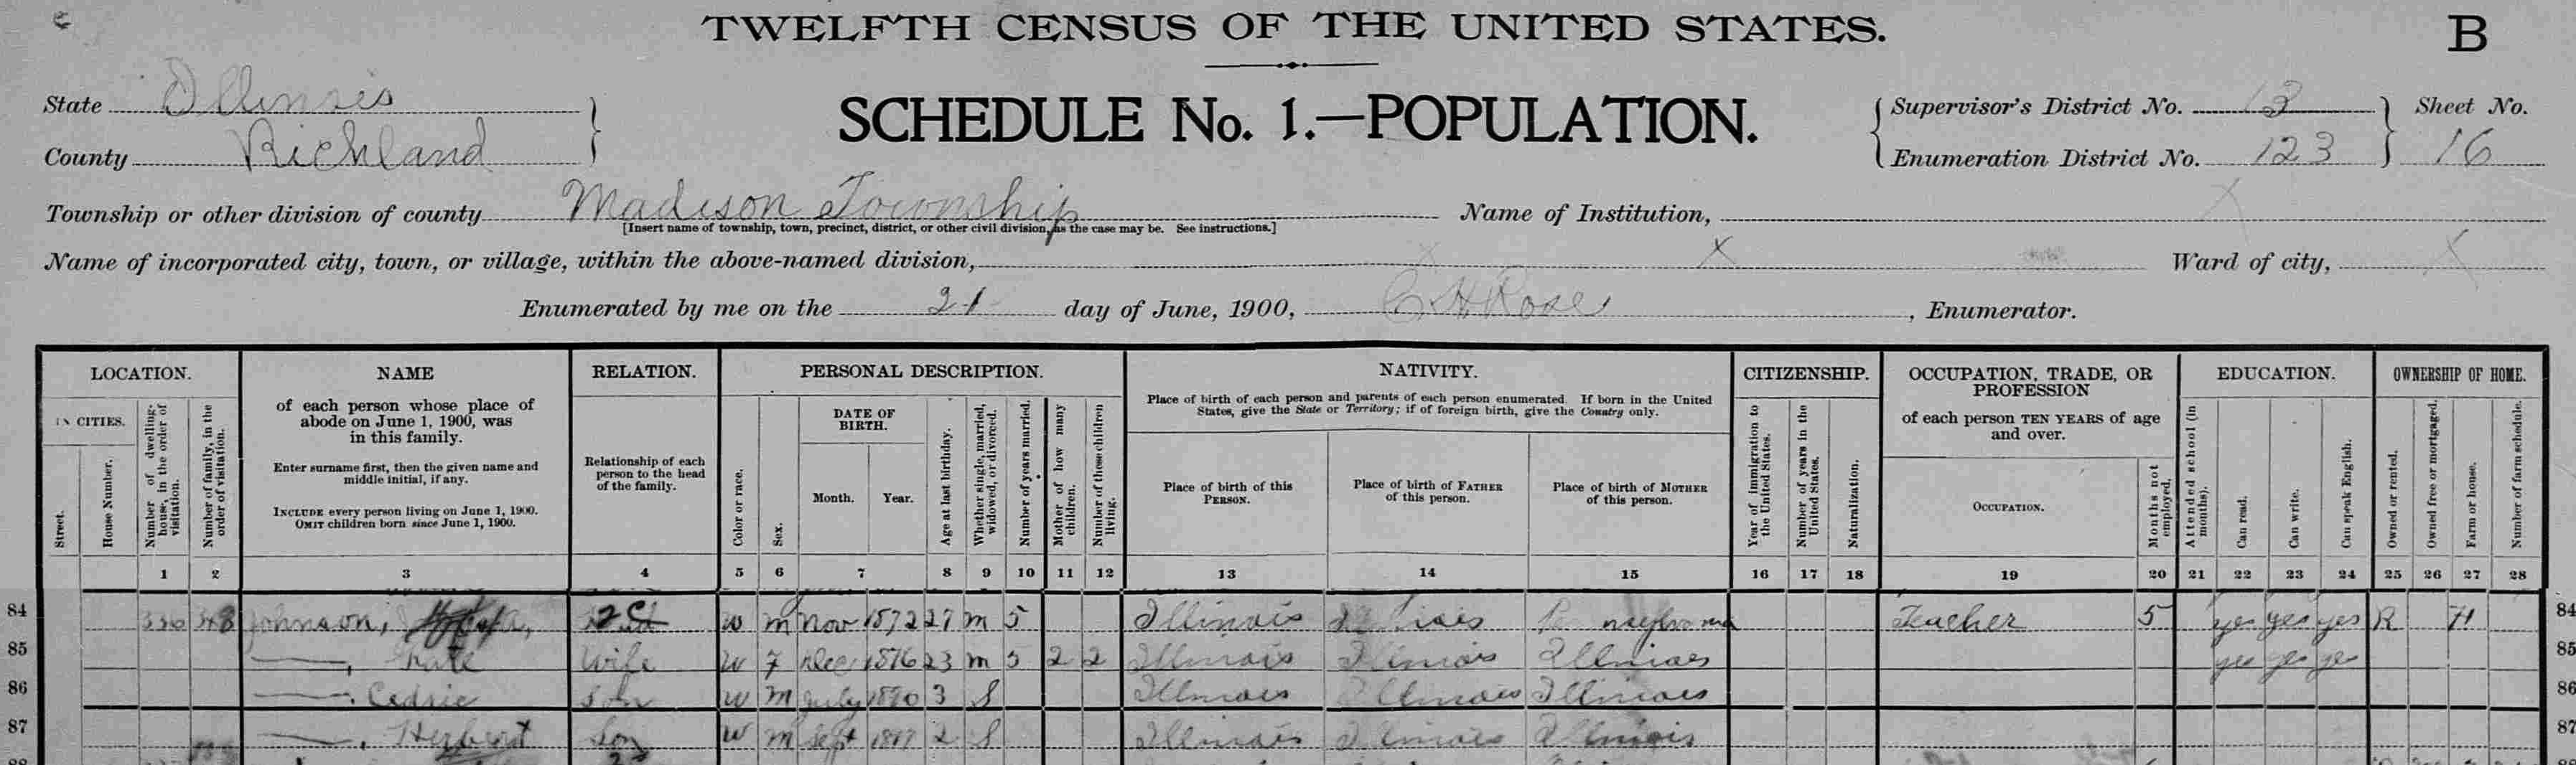 TWELFTH CENSUS OF THE UNITED STATES.
B
State Illinois
County Richland
SCHEDULE No. 1.—POPULATION.
Supervisor's District No. 13
Enumeration District No. 123
Sheet No.
16
Township or other division of county Madison Township
[Insert name of township, town, precinct, district, or other civil division, as the case may be. See instructions.]
Name of Institution, X
Name of incorporated city, town, or village, within the above-named division, X
Ward of city, X
Enumerated by me on the 21 day of June, 1900, C H Rose, Enumerator.
LOCATION.
IN CITIES.
Street.
House Number.
Number of dwelling-house, in the order of visitation.
Number of family, in the order of visitation.
NAME
of each person whose place of
abode on June 1, 1900, was
in this family.
Enter surname first, then the given name and
middle initial, if any.
INCLUDE every person living on June 1, 1900.
OMIT children born since June 1, 1900.
RELATION.
Relationship of each
person to the head
of the family.
PERSONAL DESCRIPTION.
Color or race.
Sex.
DATE OF
BIRTH.
Month.
Year.
Age at last birthday.
Whether single, married, widowed, or divorced.
Number of years married.
Mother of how many children.
Number of these children living.
NATIVITY.
Place of birth of each person and parents of each person enumerated. If born in the United
States, give the State or Territory; if of foreign birth, give the Country only.
Place of birth of this
PERSON.
Place of birth of FATHER
of this person.
Place of birth of MOTHER
of this person.
CITIZENSHIP.
Year of immigration to the United States.
Number of years in the United States.
Naturalization.
OCCUPATION, TRADE, OR
PROFESSION
of each person TEN YEARS of age
and over.
OCCUPATION.
Months not employed.
EDUCATION.
Attended school (in months).
Can read.
Can write.
Can speak English.
OWNERSHIP OF HOME.
Owned or rented.
Owned free or mortgaged.
Farm or house.
Number of farm schedule.
1 2 3 4 5 6 7 8 9 10 11 12 13 14 15 16 17 18 19 20 21 22 23 24 25 26 27 28
84 336 348 Johnson, W m Nov 1872 27 m 5 Illinois Illinois Teacher 5 yes yes yes R H 84
85 —, Kate Wife W F Dec 1876 23 m 5 2 2 Illinois Illinois Illinois yes yes yes 85
86 —, Cedric Son W m July 3 S Illinois Illinois Illinois 86
87 —, Herbert Son W m Sept 1897 2 S Illinois Illinois Illinois 87